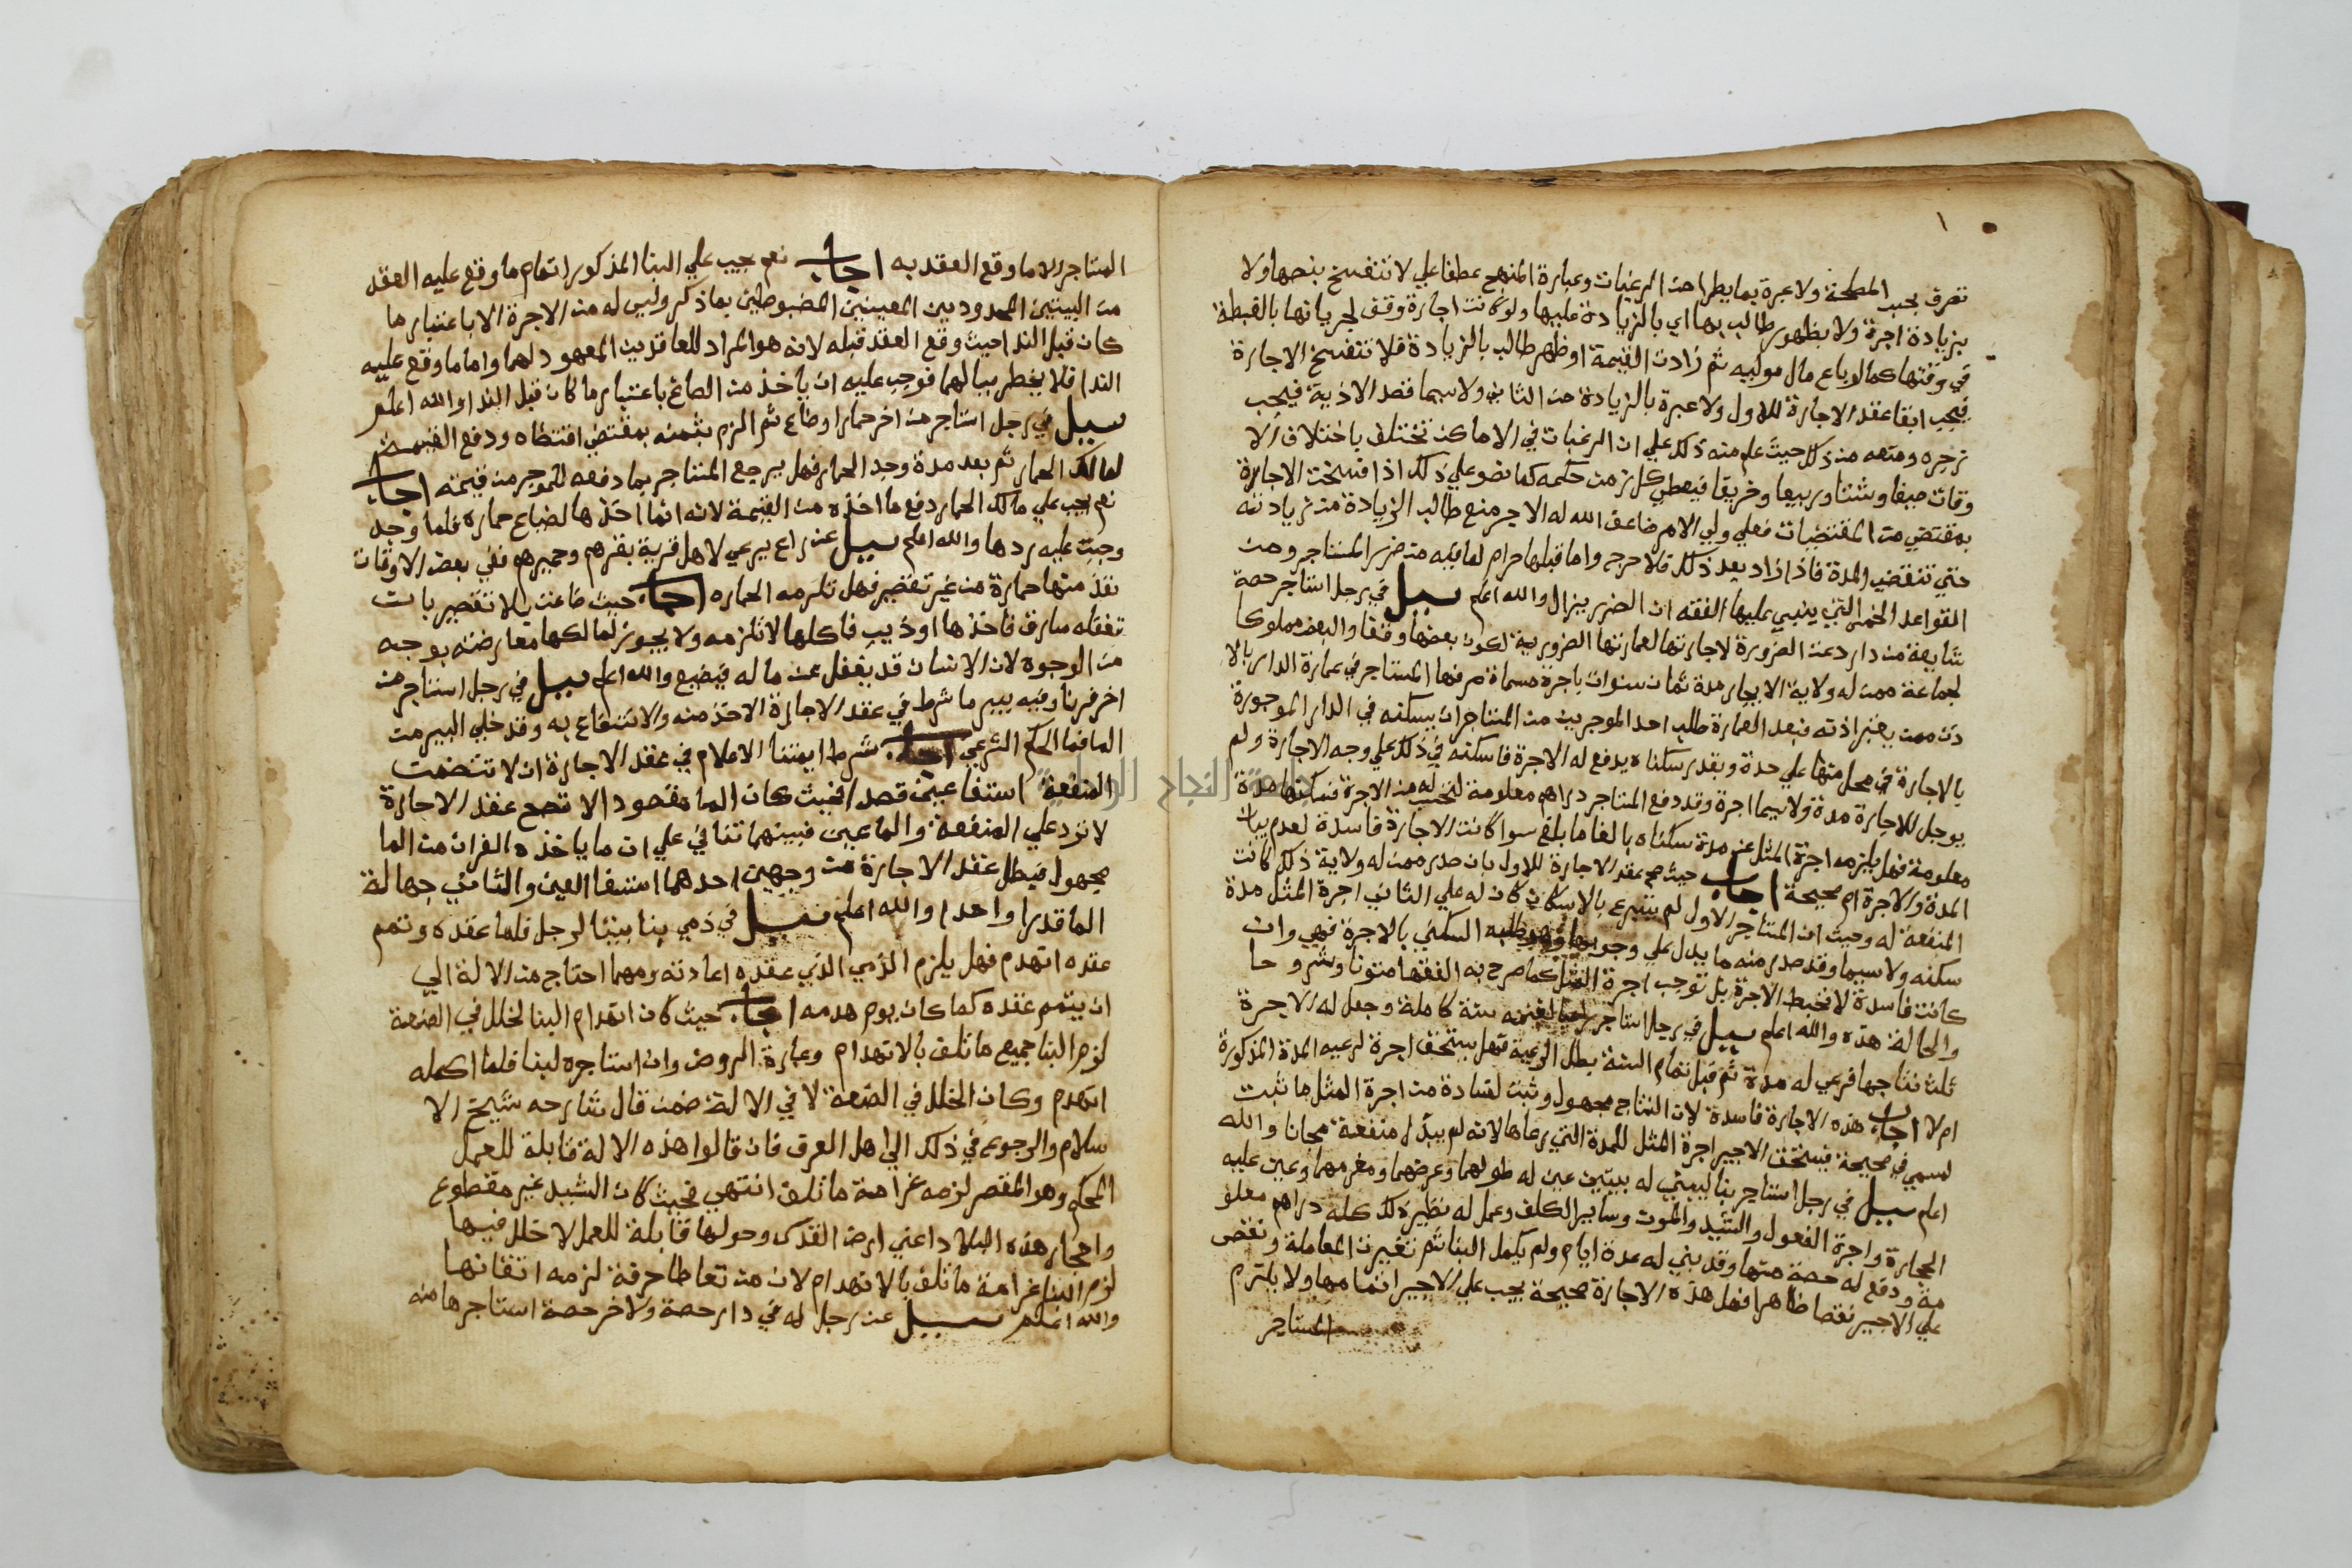 تصرف بحسب المصلحة ولا عبرة بما يطرا من الرغبات وعبارة المنهج عطفا علي لا تنفسخ بنحوها ولا
بزيادة اجرة ولا بظهور طالب بها اي بالزيادة عليها ولو كانت اجارة وقف لجريانها بالغبطة
في وقتها كما لو باع مال موليه ثم زادت القيمة او ظهر طالب بالزيادة فلا تنفسخ الاجارة
فيجب ابقا عقد الاجارة للاول ولا عبرة بالزيادة من الثاني ولا سيما قصد الاذية فيجب
زجره ومنعه من ذلك حيث علم منه ذلك علي ان الرغبات في الاماكن تختلف باختلاف الا
وقات صيفا وشتا وربيعا وخريفا فيعطي كل زمن حكمه كما نصوا علي ذلك اذا فسخت الاجارة
بمقتضي من المقتضيات فعلي ولي الامر ضاعف الله له الاجر منع طالب الزيادة من زيادته
حتي تنقضي المدة فاذا زاد بعد ذلك فلا حرج واما قبلها حرام لما فيه من ضرر المستاجر ومن
القواعد الخمس التي ينبني عليها الفقه ان الضرر يزال والله اعلم سيل في رجل استاجر حصة
شايعة من دار دعت الضرورة لاجارتها لعمارتها الضرورية لكون بعضها وقفا والبعض مملوكا
لجماعة ممن له ولاية الايجار مدة ثمان سنوات باجرة مسماة صرفها المستاجر في عمارة الدار بالا
ذن ممن يعتبر اذنه فبعد العمارة طلب احد الموجرين من المستاجر ان يسكنه في الدار الموجورة
بالاجارة في محل منها علي حدة وبقدر سكناه يدفع له الاجرة فاسكنه في ذلك علي وجه الاجارة ولم
يوجل للاجارة مدة ولا سيما اجرة وقد دفع المستاجر دراهم معلومة لتحسب له من الاجرة فسكنها مدة
معلومة فهل يلزمه اجرة المثل عن مدة سكناه بالغا ما بلغ سوا كانت الاجارة فاسدة لعدم بيان
المدة والاجرة ام صحيحة اجاب حيث صح عقد الاجارة للاول بان صدر ممن له ولاية ذلك كانت
المنفعة له وحيث ان المستاجر الاول لم يتبرع بالاسكان كان له علي الثاني اجرة المثل مدة
سكنه ولا سيما وقد صدر منه ما يدل علي وجوبها وهو طلبه السكني بالاجرة فهي وان
كانت فاسدة لا تحبط الاجرة بل توجب اجرة المثل كما صرح به الفقها متونا وشروحا
والحالة هذه والله اعلم سيل في رجل استاجر راعيا لغنمه سنة كاملة وجعل له الاجرة
ثلث نتاجها فرعي له مدة ثم قبل تمام السنة بطل الرعية فهل يستحق اجرة لرعيه المدة المذكورة
ام لا اجاب هذه الاجارة فاسدة لان النتاج مجهول وثبت لفساده من اجرة المثل ما ثبت
لمسمي في صحيحة فيستحق الاجير اجرة المثل للمدة التي رعاها لانه لم يبذل منفعة مجانا والله
اعلم سيل في رجل استاجر بنا ليبني له بيتين عين له طولهما وعرضهما ومغرمهما وعين عليه
الحجارة واجرة الفعول والشيد والموت وساير الكلف وعمل له نظير ذلك كله دراهم معلو
مة ودفع له حصة منها وقد بني له عدة ايام ولم يكمل البنا ثم تغيرت المعاملة ونقص
علي الاجير نقصا ظاهرا فهل هذه الاجارة صحيحة يجب علي الاجير اتمامها ولا يلتزم
المستاجر
المستاجر الا ما وقع العقد به اجاب نعم يجب علي البنا المذكور اتمام ما وقع عليه العقد
من البيتين المحدودين المعينين المضبوطين بما ذكر وليس له من الاجرة الا باعتبار ما
كان قبل الندا حيث وقع العقد قبله لانه هو المراد للعاقدين المعهود لهما واما ما وقع عليه
الندا فلا يخطر ببالهما فوجب عليه ان ياخذ من الصاغ باعتبار ما كان قبل الندا والله اعلم
سيل في رجل استاجر من اخر حمارا وضاع ثم الزم بثمنه بمقتضي اقتضاه ودفع القيمة
لمالك الحمار ثم بعد مدة وجد الحمار فهل يرجع المستاجر بما دفعه للموجر من قيمته اجاب
نعم يجب علي مالك الحمار دفع ما اخذه من القيمة لانه انما اخذها لضياع حماره فلما وجد
وجب عليه ردها والله اعلم سيل عن راع يرعي لاهل قرية بقرهم وحميرهم ففي بعض الاوقات
نفذ منها حمارة من غير تقصير فهل تلزمه الحماره اجاب حيث ضاعت بلا تقصير بان
تغفله سارق فاخذها او ذيب فاكلها لا تلزمه ولا يجوز لمالكها معارضته بوجه
من الوجوه لان الانسان قد يغفل عن ماله فيضيع والله اعلم سيل في رجل استاجر من
اخر فرنا وفيه بير ما شرط في عقد الاجارة الاخذ منه والانتفاع به وقد خلي البير من
الما فما الحكم الشرعي اجاب شرط ايمتنا الاعلام في عقد الاجارة ان لا تتضمن
المنفعة استفا عين قصدا فحيث كان الما مقصودا لا تصح عقد الاجارة
لا ترد علي المنفعة والما عين فبينهما تنافي علي ان ما ياخذه الفران من الما
مجهول فبطل عقد الاجارة من وجهين احدهما استيفا العين والثاني جهالة
الما قدرا واحدا والله اعلم سيل في ذمي بنا بيتا لرجل فلما عقده وتمم
عقده انهدم فهل يلزم الذمي الذي عقده اعادته ومهما احتاج من الالة الي
ان يتمم عقده كما كان يوم هدمه اجاب حيث كان انهدام البنا لخلل في الصنعة
لزم البنا جميع ما تلف بالانهدام وعبارة الروض وان استاجره لبنا فلما اكمله
انهدم وكان الخلل في الصنعة لا في الالة ضمن قال شارحه شيخ الا
سلام والرجوع في ذلك الي اهل العرف فان قالوا هذه الالة قابلة للعمل
المحكم وهو المقصر لزمه غرامة ما تلف انتهي فحيث كان الشيد غير مقطوع
واحجار هذه البلاد اعني ارض القدس وحولها قابلة للعمل لا خلل فيها
لزم البنا غرامة ما تلف بالانهدام لان من تعاطا حرفة لزمه اتقانها
والله اعلم سيل عن رجل له في دار حصة ولاخر حصة استاجرها منه